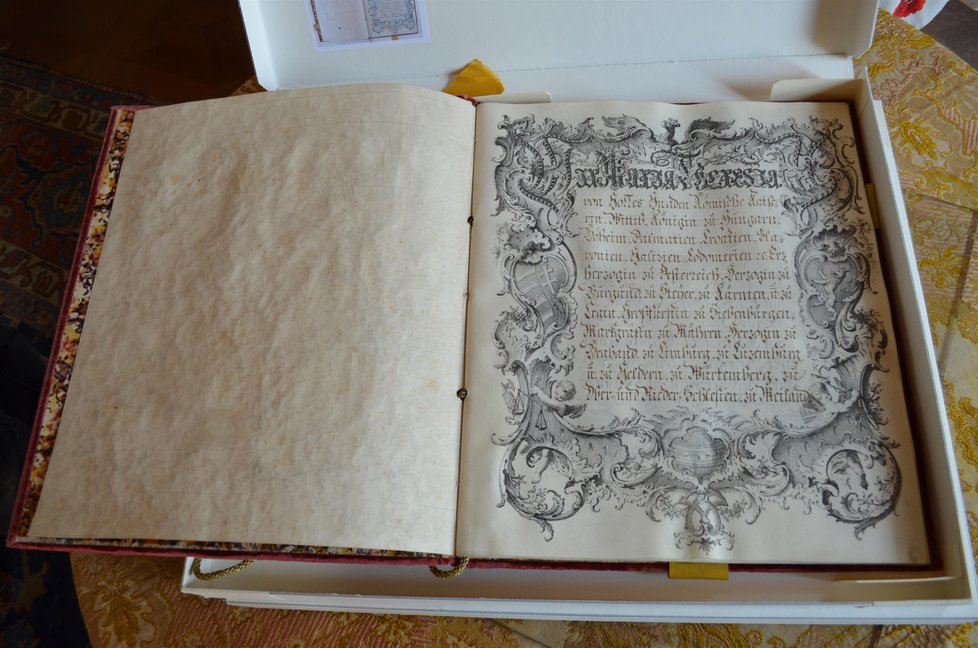 Wir Maria Theresia
von Gottes Gnaden Römische Kaise-
rin Wittib, Königin zu Hungarn,
Böheim, Dalmatien, Croatien, Sla-
vonien, Galizien, Lodomerien ꝛc. Erz-
herzogin zu Österreich, Herzogin zu
Burgund, zu Steyer, zu Kärnten, u: zu
Crain, Großfürstin zu Siebenbürgen,
Markgräfin zu Mähren, Herzogin zu
Braband, zu Limburg, zu Luzemburg,
u: zu Geldern, zu Würtemberg, zu
Ober- und Nieder-Schlesien, zu Meiland